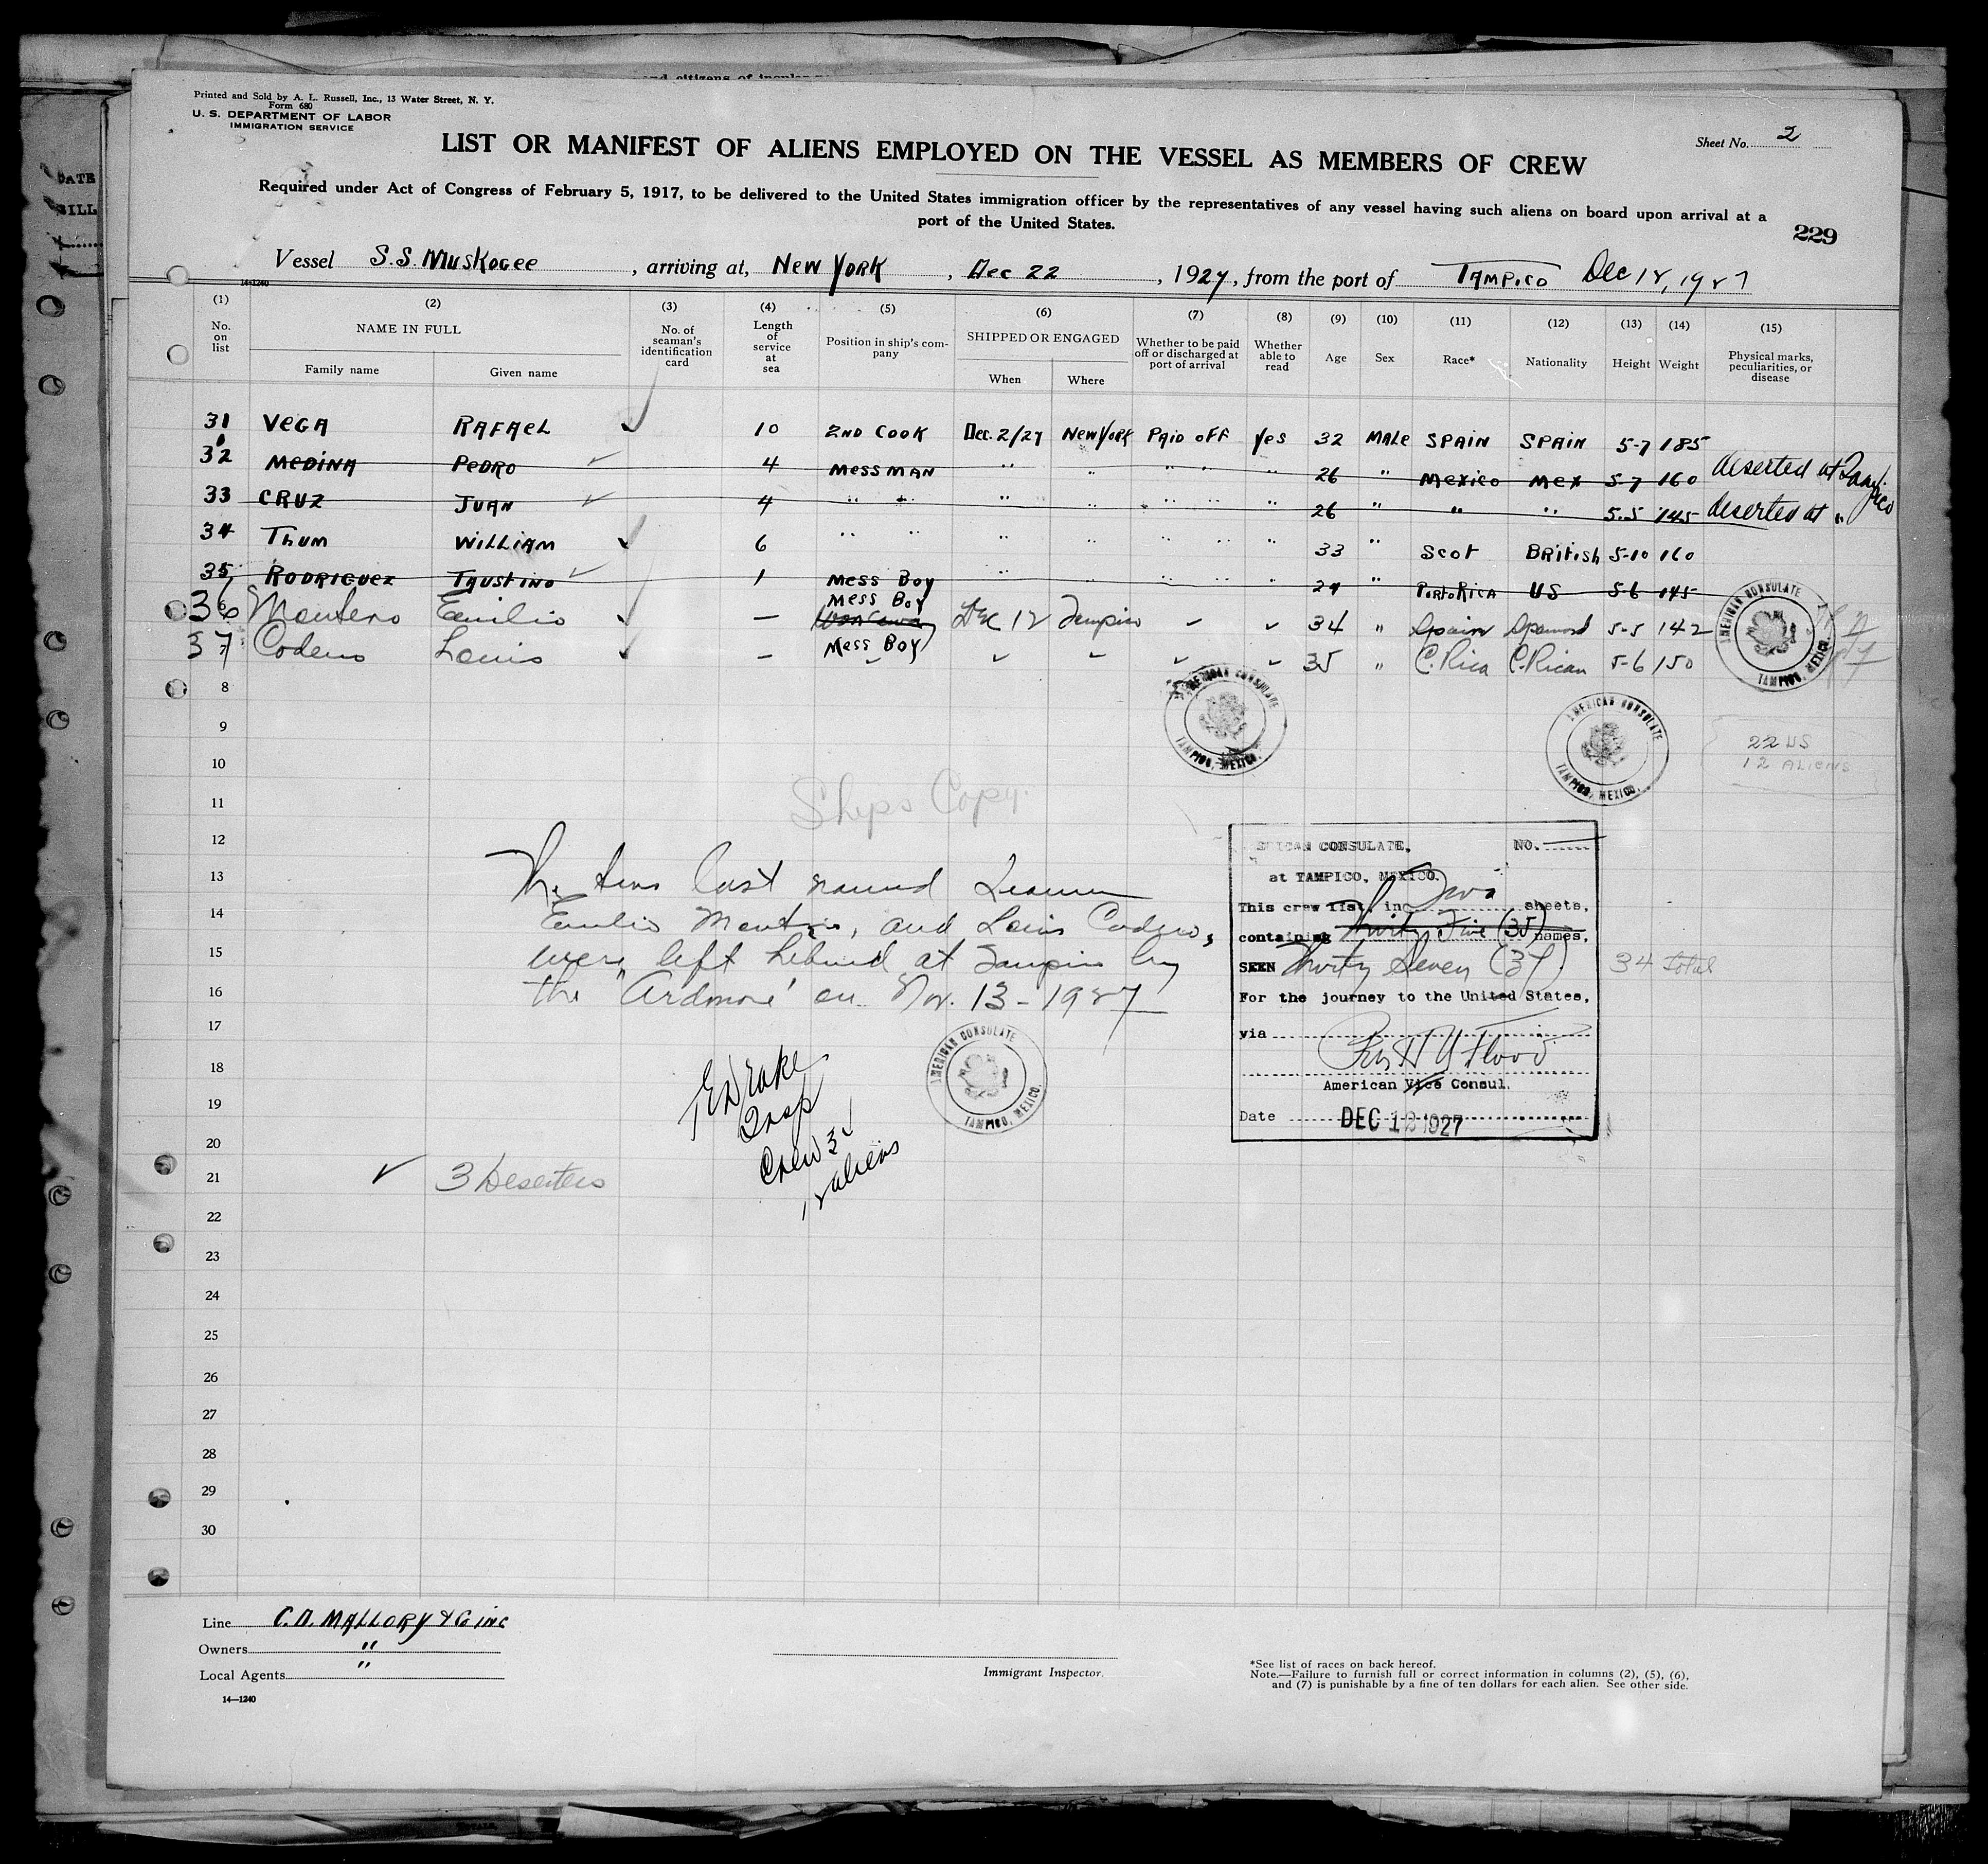 Printed and Sold by A. L. Russell, Inc., 13 Water Street, N. Y.
Form 680
U. S. DEPARTMENT OF LABOR
IMMIGRATION SERVICE
Sheet No. 2
LIST OR MANIFEST OF ALIENS EMPLOYED ON THE VESSEL AS MEMBERS OF CREW
Required under Act of Congress of February 5, 1917, to be delivered to the United States immigration officer by the representatives of any vessel having such aliens on board upon arrival at a
port of the United States.
229
Vessel S.S. Muskogee, arriving at, New York, Dec 22, 1927, from the port of Tampico Dec 12, 1927
14-1240
(1) (2) (3) (4) (5) (6) (7) (8) (9) (10) (11) (12) (13) (14) (15)
No. on list NAME IN FULL Family name Given name No. of seaman's identification card Length of service at sea Position in ship's company SHIPPED OR ENGAGED When Where Whether to be paid off or discharged at port of arrival Whether able to read Age Sex Race* Nationality Height Weight Physical marks, peculiarities, or disease
31 VEGA RAFAEL 10 2ND COOK Dec. 2/27 New York PAID OFF Yes 32 MALE SPAIN SPAIN 5-7 185
32 MEDINA PEDRO 4 MESSMAN " " " " " 26 " Mexico Mex 5-7 160 deserted at Tampico
33 CRUZ JUAN 4 " " " " " " " 26 " " " 5-5 145 deserted at "
34 Thum WILLIAM 6 " " " " " " " 33 " Scot British 5-10 160
35 RODRIGUEZ FAUSTINO 1 MESS BOY " " " " " 29 " PORTO RICA US 5-6 145
36 Montero Emilio — Mess Boy Dec 12 Tampico 34 " Spain Spaniard 5-5 142
37 Codero Louis — Mess Boy 35 " C. Rica C. Rican 5-6 150
8
9
10
11
12
13
14
15
16
17
18
19
20
21
22
23
24
25
26
27
28
29
30
AMERICAN CONSULATE TAMPICO, MEXICO.
AMERICAN CONSULATE TAMPICO, MEXICO.
AMERICAN CONSULATE TAMPICO, MEXICO.
22 US
12 ALIENS
Ships Copy.
The two last named Seamen
Emilio Montero, and Louis Codero,
were left behind at Tampico by
the "Ardmore" on Nov. 13-1927
AMERICAN CONSULATE TAMPICO, MEXICO.
AMERICAN CONSULATE, NO.
at TAMPICO, MEXICO.
This crew list, in Two sheets,
containing Thirty Five (35) names,
SEEN Thirty Seven (37)
For the journey to the United States,
via
American Vice Consul.
Date DEC 12 1927
34 total
E Drake
Insp
Crew 34
12 aliens
3 Deserters
Line C.D. MALLORY & Co INC
Owners "
Local Agents "
14—1240
Immigrant Inspector.
*See list of races on back hereof.
Note.—Failure to furnish full or correct information in columns (2), (5), (6),
and (7) is punishable by a fine of ten dollars for each alien. See other side.